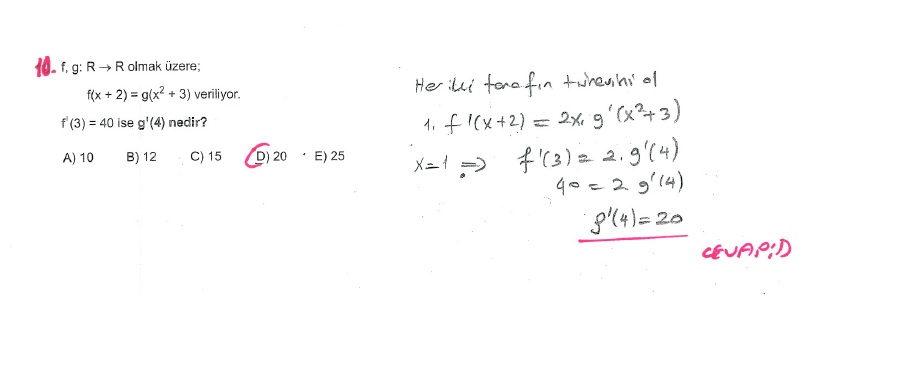 10. f, g: R → R olmak üzere;
f(x + 2) = g(x² + 3) veriliyor.
f'(3) = 40 ise g'(4) nedir?
A) 10 B) 12 C) 15 D) 20 E) 25
Her iki tarafın türevini al
1. f'(x+2) = 2x. g'(x²+3)
x=1 => f'(3) = 2. g'(4)
40 = 2 g'(4)
g'(4) = 20
CEVAP: D